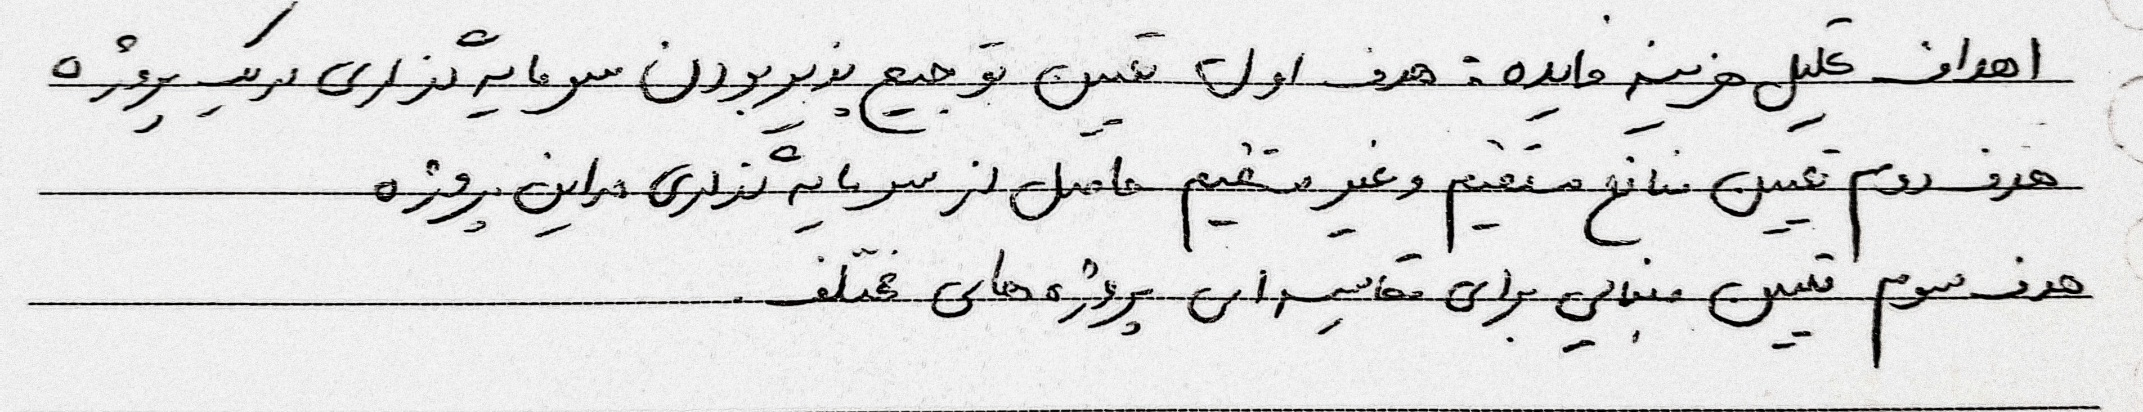 اهداف تحلیل هزینه فایده : هدف اول تعیین توجیح پذیر بودن سرمایه گذاری در یک پروژه
هدف دوم تعیین منافع مستقیم و غیر مستقیم حاصل از سرمایه گذاری در این پروژه
هدف سوم تعیین مبنایی برای مقایسه ای پروژه های مختلف .